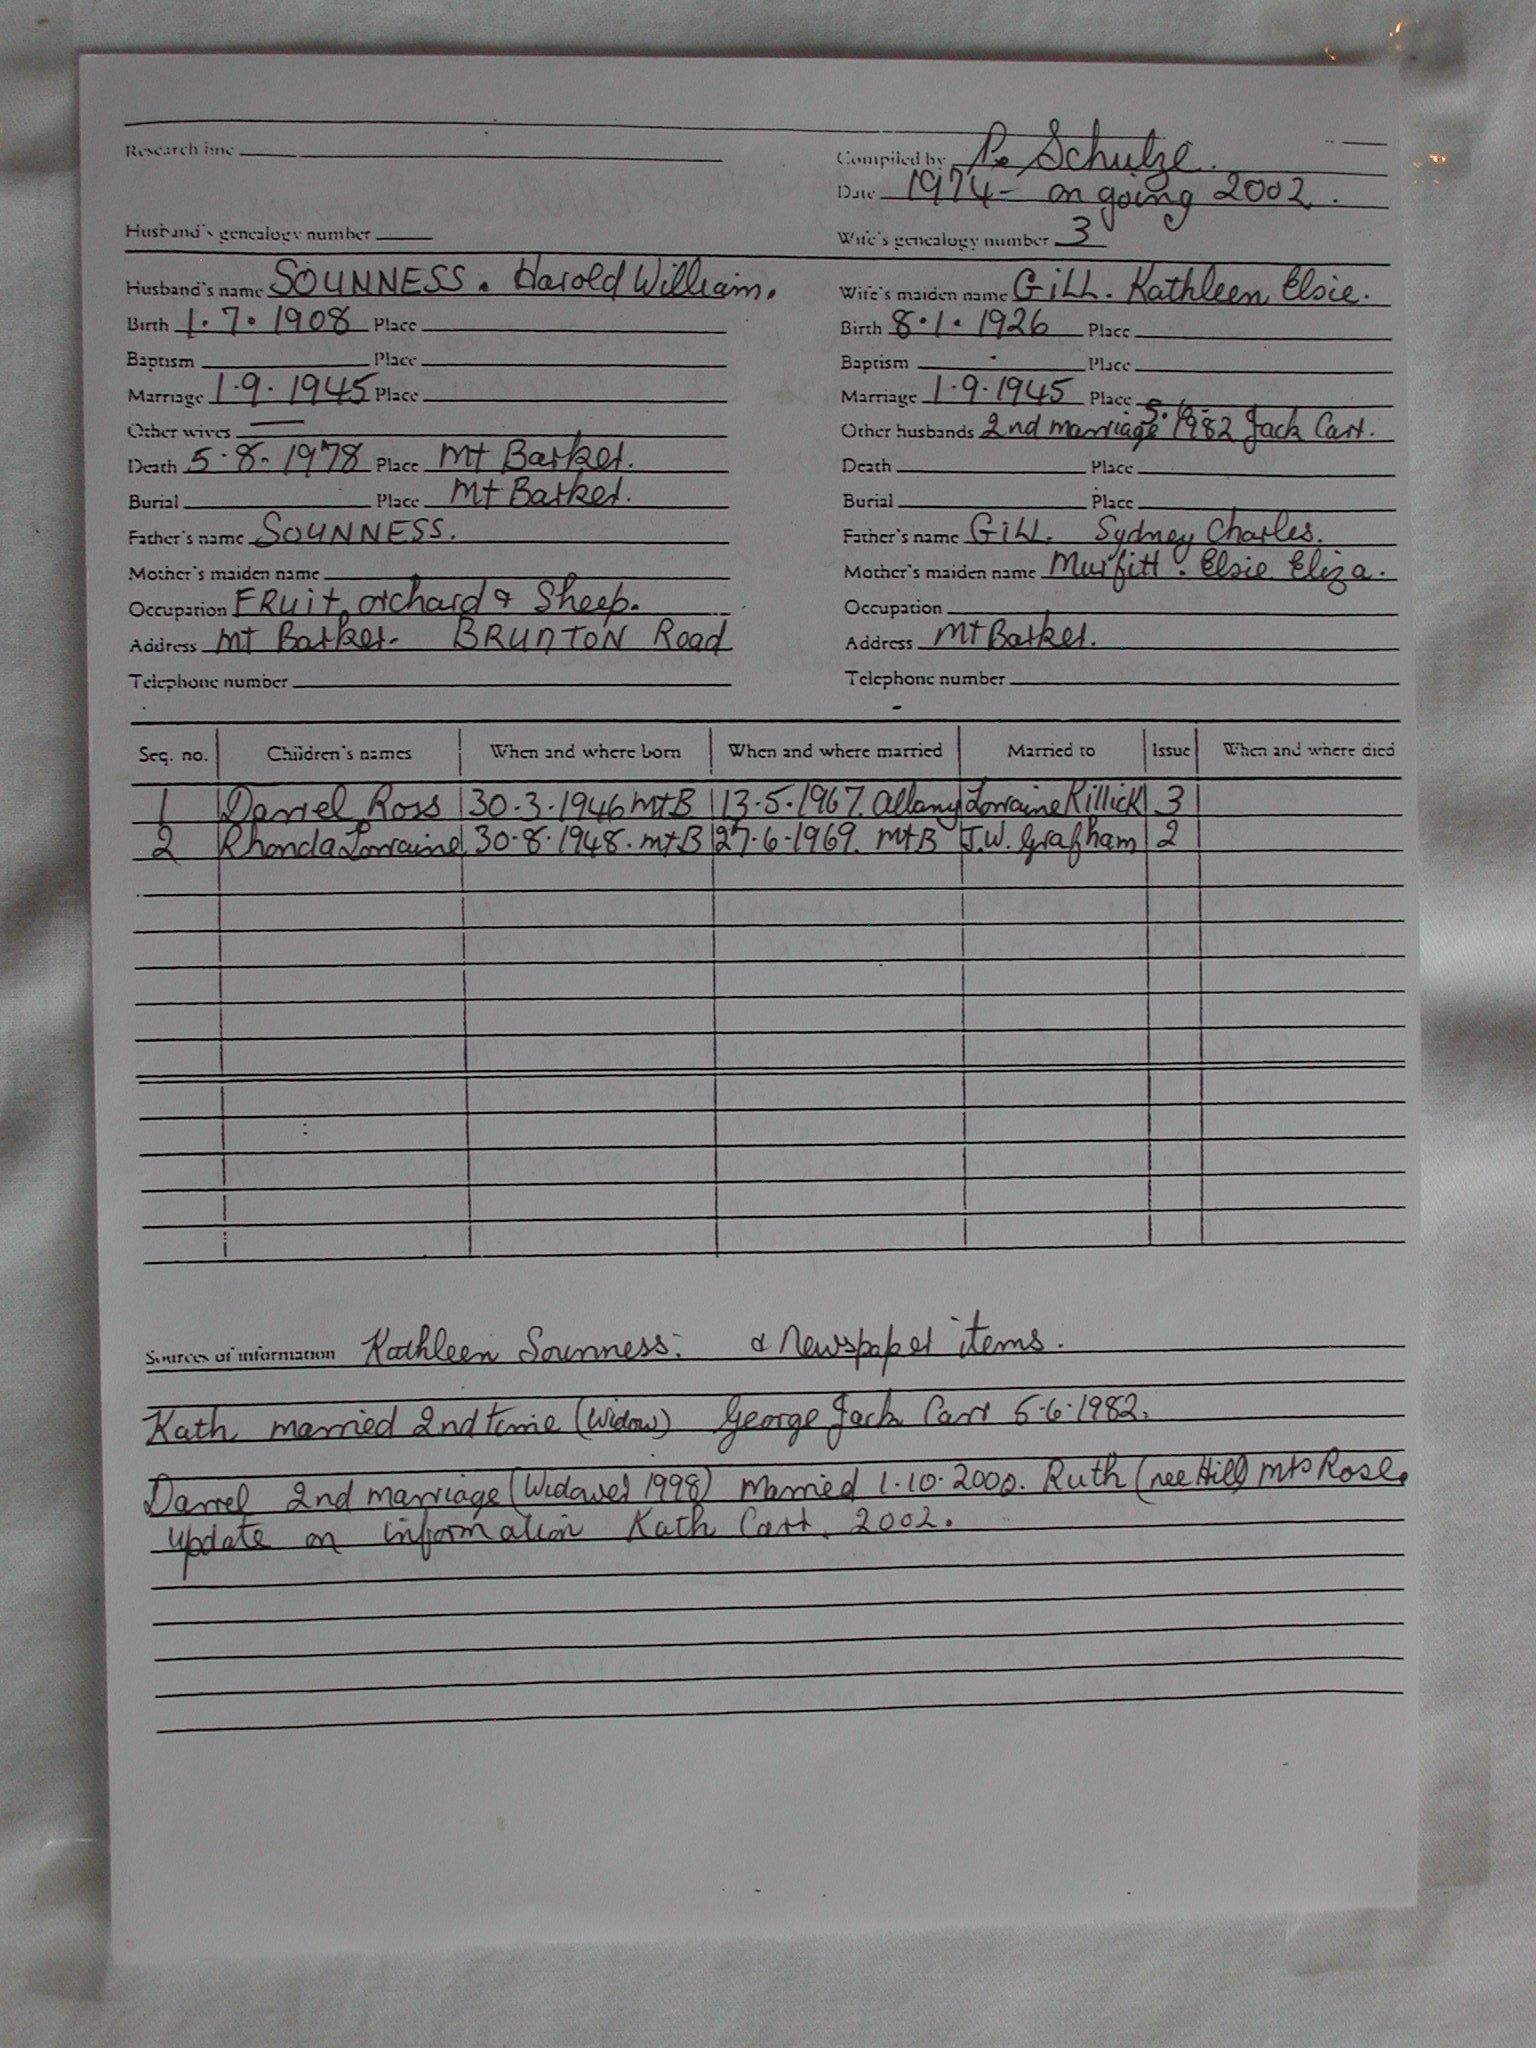 Research line
Compiled by P. Schulze.
Date 1974 - on going 2002.
Husband's genealogy number
Wife's genealogy number 3
Husband's name SOUNNESS. Harold William.
Wife's maiden name GiLL. Kathleen Elsie.
Birth 1.7.1908 Place
Birth 8.1.1926 Place
Baptism Place
Baptism Place
Marriage 1.9.1945 Place
Marriage 1.9.1945 Place
Other wives —
Other husbands 2nd marriage 5.6. 1982 Jack Carr.
Death 5.8.1978 Place Mt Barker.
Death Place
Burial Place Mt Barker.
Burial Place
Father's name SOUNNESS.
Father's name GiLL. Sydney Charles.
Mother's maiden name
Mother's maiden name Murfitt. Elsie Eliza.
Occupation FRuit, orchard & Sheep.
Occupation
Address Mt Barker. BRUNTON Road
Address Mt Barker.
Telephone number
Telephone number
Seq. no. Children's names When and where born When and where married Married to Issue When and where died
1 Darrel Ross 30.3.1946 Mt B 13.5.1967. Albany Lorraine Killick 3
2 Rhonda Lorraine 30.8.1948. Mt B 27.6.1969. Mt B J.W. Grafham 2
Sources of information Kathleen Sounness: & Newspaper items.
Kath married 2nd time (Widow) George Jack Carr 5.6.1982.
Darrel 2nd marriage (Widower 1998) Married 1.10.2000. Ruth (nee Hill)
update on information Kath Carr. 2002.